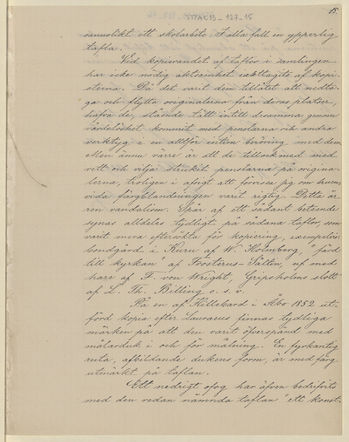 15
sannolikt ett skolarbete. I alla fall en ypperlig
tafla.
Vid kopierandet af taflor i samlingen
har icke nödig aktsamhet iakttagits af kopi-
sterna. Då det varit dem tillåtet att nedta-
ga och flytta originalerna från deras platser,
hafva de, stående tätt intill desamma genom
vårdslöshet kommit med penslarna och andra
verktyg i en alltför intim beröring med dem
eller ännu värre är att de tillochmed med
vett och vilja strukit penslarna på origina-
lerna, troligen i afsigt att förvissa sig om huru-
vida färgblandningen varit rigtig. Detta är
ren vandalism. Spår af ett sådant beteende
synas alldeles tydligt på sådana taflor som
varit mera eftersökta för kopiering, exempelvis
bondgård i Kuru af W. Holmberg, "färd
till kyrkan" af Jansson, af med
hare af F. von Wright, Gripsholms slott
af L. Th. Billing o. s. v.
På en af Killakord i Åbo 1852 ut-
förd kopia efter finnas tydliga
märken på att den varit öfverspänd med
målarduk i och för målning. En fyrkantig
ruta, afbildande dukens form, är med färg
utmärkt på taflan.
Ett nedrigt ofog har äfven bedrifvits
med den redan nämnda taflan "ett konst-